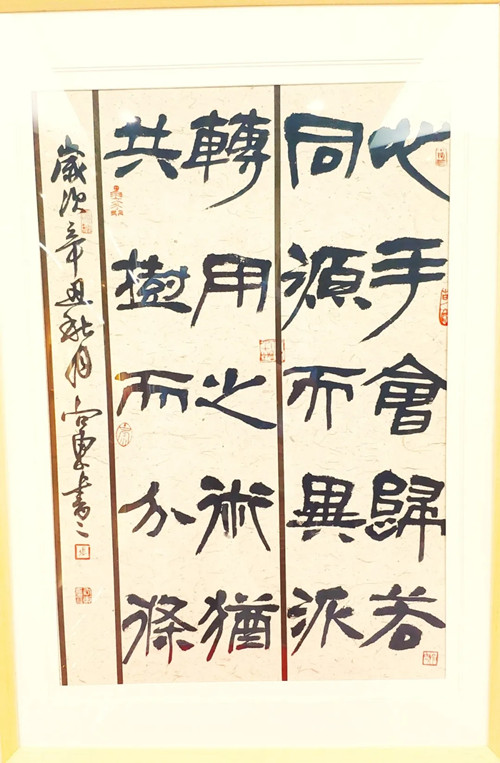 心手會歸若
同源而異派
轉用之術猶
共樹而分條
歲次辛丑秋月書